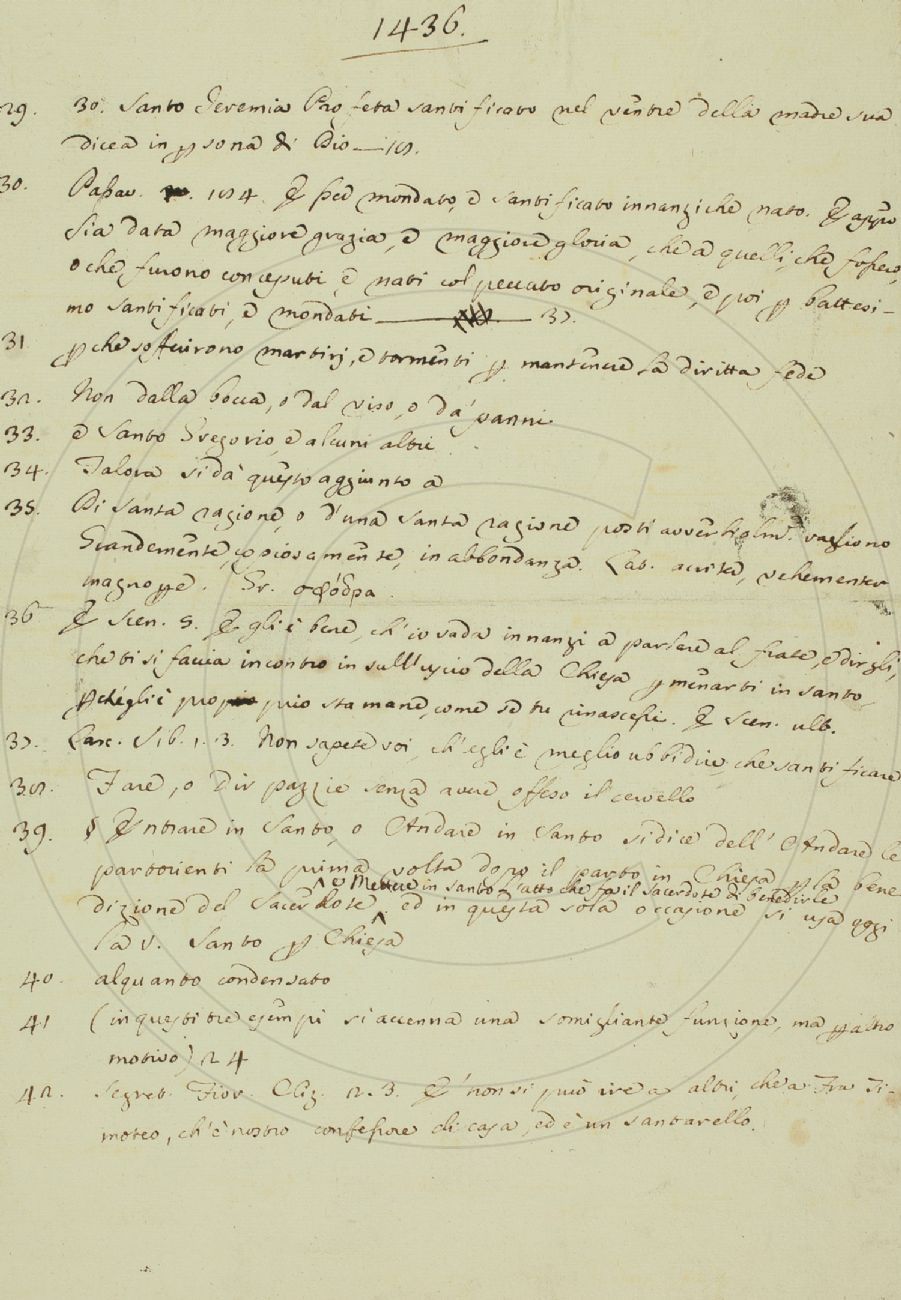 1436.
29. 30. Santo Jeremia Profeta santificato nel ventre della madre sua
dicea in psona di Dio — 18.
30. Passav. 184. E fce mondato, e santificato innanzi che nato. E appo
sia data maggiore grazia, e maggiore gloria, che a quelli, che fossero,
o che furono conceputi, e nati col peccato originale, e poi p battesi-
mo santificati, e mondati — 37.
31 pche soffrirono martirj, e tormenti p mantenere la diritta fede
32. Non dalla bocca, o dal viso, o da' panni.
33. e Santo Gregorio, e alcuni altri
34. Talora si dà questo aggiunto a
35. Di santa ragione, o d'una santa ragione posti avverbialm. vagliono
Grandemente, copiosamente, in abbondanza. Lat. acriter, vehementer
magnope. Gr. σφόδρα.
36 E Scen. 5. E gli è bene, ch'io vada innanzi a parlare al frate, e dirgli,
che ti si faccia incontro in sull'uscio della Chiesa p menarti in santo,
pch'egli è proprio stamane, come se tu rinascessi. E Scen. ult.
37. Lasc. Sib. 1. 3. Non sapete voi, ch'egli è meglio ubbidire, che santificare
38. Fare, o Dir pazzie senza avere offeso il cervello
39. § Entrare in Santo, o Andare in Santo si dice dell'Andare le
partorienti la prima volta dopo il parto in Chiesa p la bene
e Mettere in santo L'atto che fa il sacerdote di benedirle
dizione del Sacerdote, ed in questa sola occasione si usa oggi
la v. Santo p Chiesa
40. alquanto condensato
41 (in questi tre esempi si accenna una somigliante funzione, ma p altro
motivo) 24
42. Segret. Fior. Cliz. 2. 3. E' non si può ire a altri, che a Fra Ti-
moteo, ch'è nostro confessore di casa, ed è un santarello.